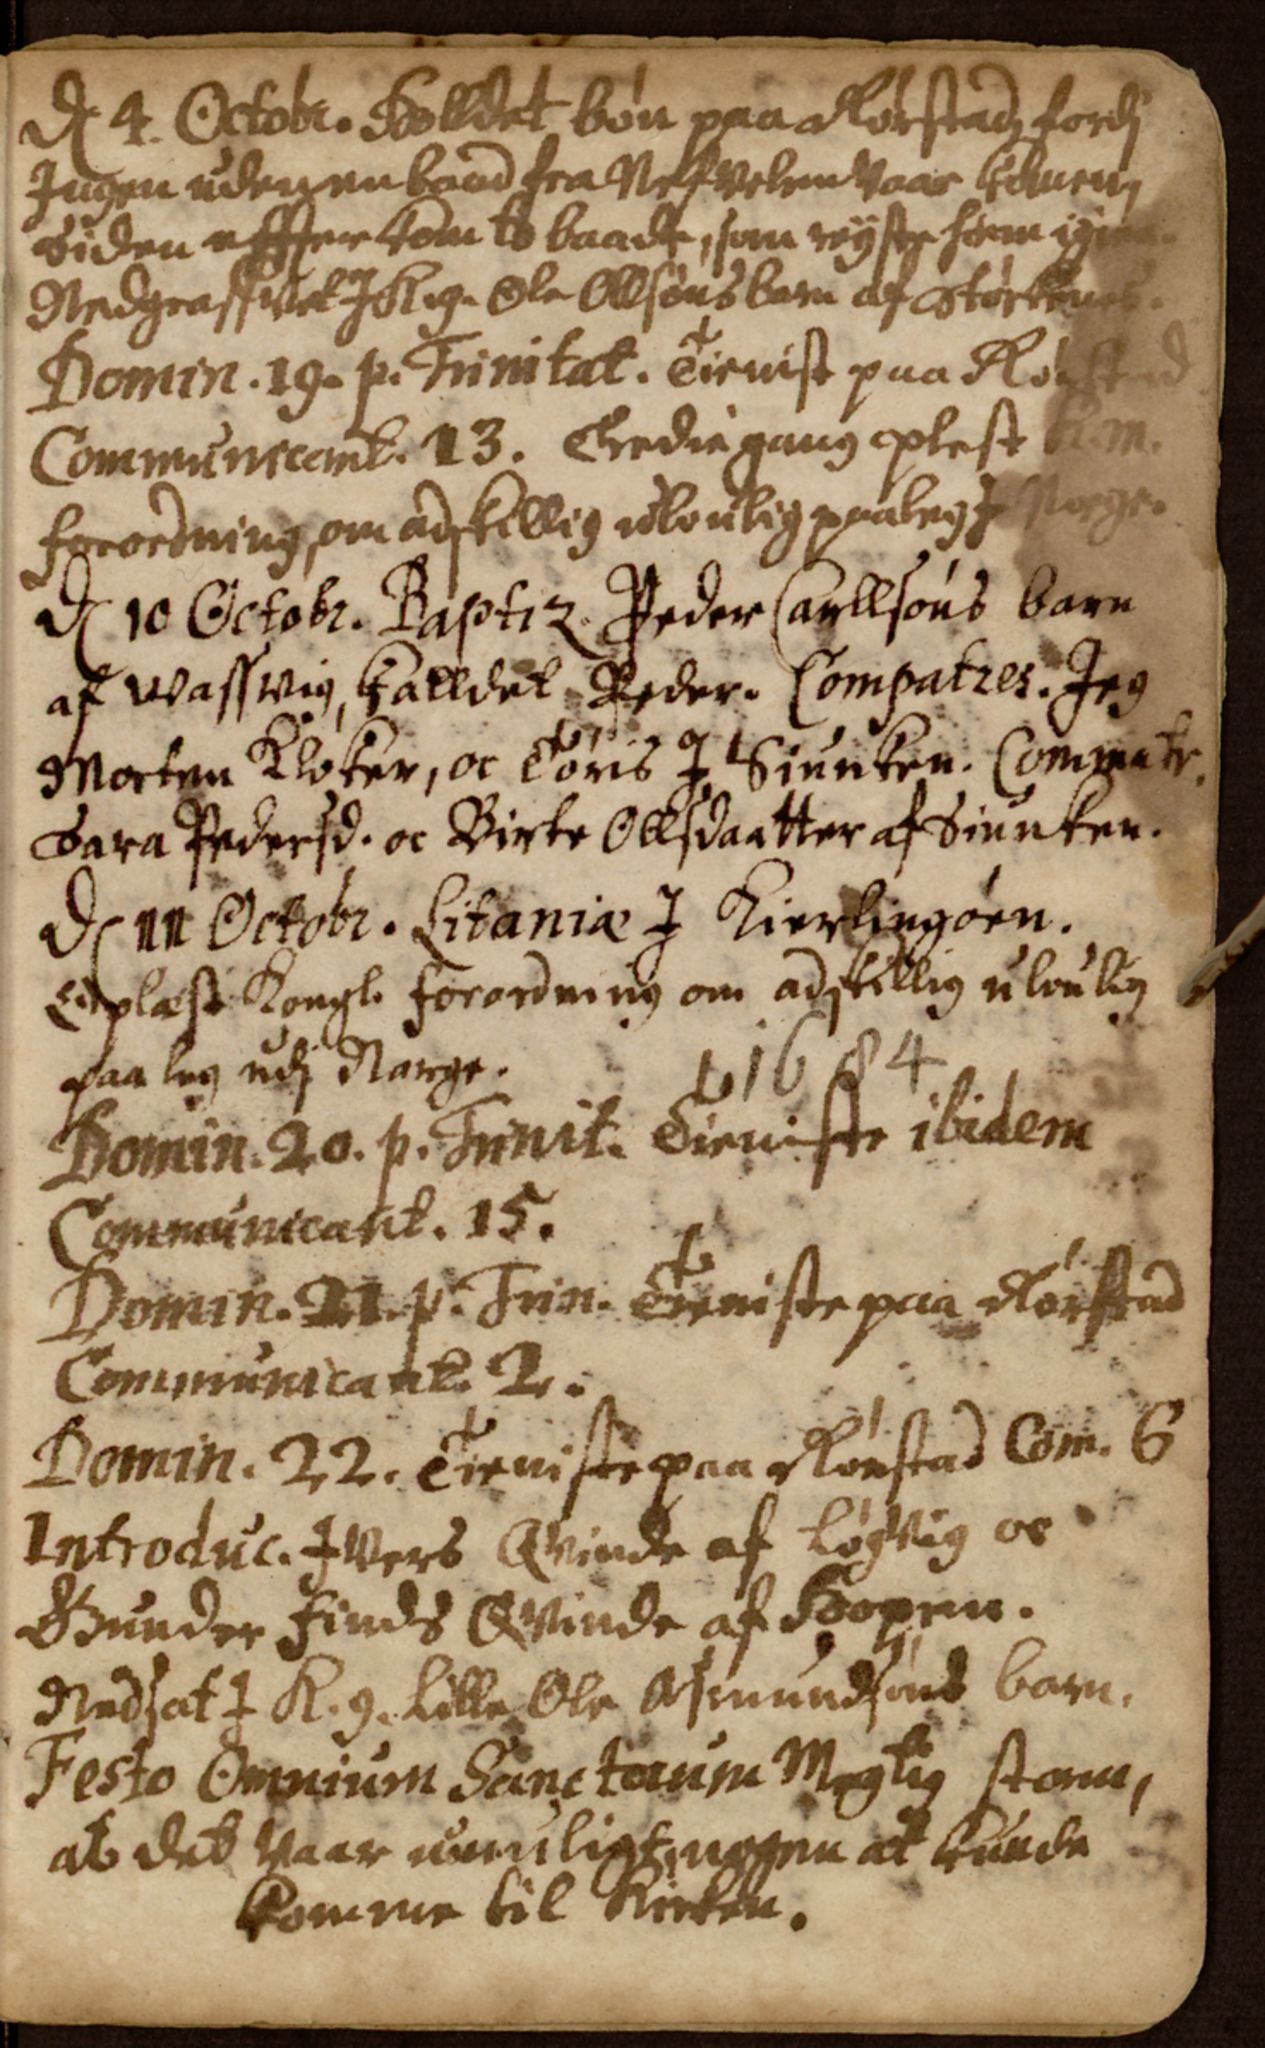 D. 4. Octobr. Holldet bøn paa Rørstad, fordj
Ingen uden en baad fra Nefvelen vaar kommen,
siden effter kom to baade, som reyste hiem igien.
Nedgraffvet J K.g. Ole Ollsøns barn af Størkenes.
Domin. 19. p. Trinitat. Tienist paa Rørstad
Communicant. 13. Tredie gang oplest K. M.
forordning, om adskillig ulovlig paaleg J Norge.
D. 10 Octobr. Baptiz. Peder Carllsøns barn
af Wassvig, kalldet Peder. Compatres. Jeg
Morten Kloker, oc Tøris J Siunken. Commatr.
Sara Pedersd. oc Birte Ollsdaatter af Siunken.
D. 11 Octobr. Litaniæ J Kierlingøen.
Er oplæst Kongl. forordning om adskillig ulovlig
paaleg udj Norge.
1684
Domin. 20. p. Trinit. Tieniste ibidem
Communicant. 15.
Domin. 21. p. Trin. Tieniste paa Rørstad
Communicant. 2.
Domin. 22. Tieniste paa Rørstad Com. 6
Introduc. Jvers Qvinde af Løgvig oc
Gunder Finds Qvinde af Hopen.
Nedsat J K. g. Lille Ole Asmundsøns barn.
Festo Omnium Sanctorum Megtig storm,
at det vaar umuligt, nogen at kunde
komme til Kirken.